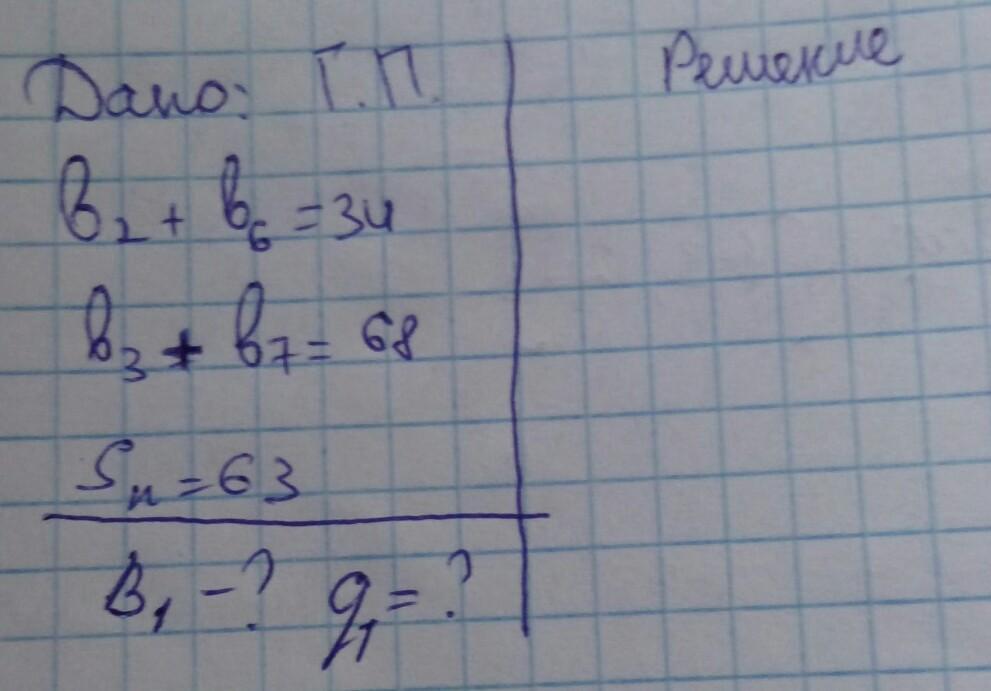 Дано: Г.П.
b₂ + b₆ = 34
b₃ + b₇ = 68
Sₙ = 63
b₁ - ? q₁ = ?
Решение